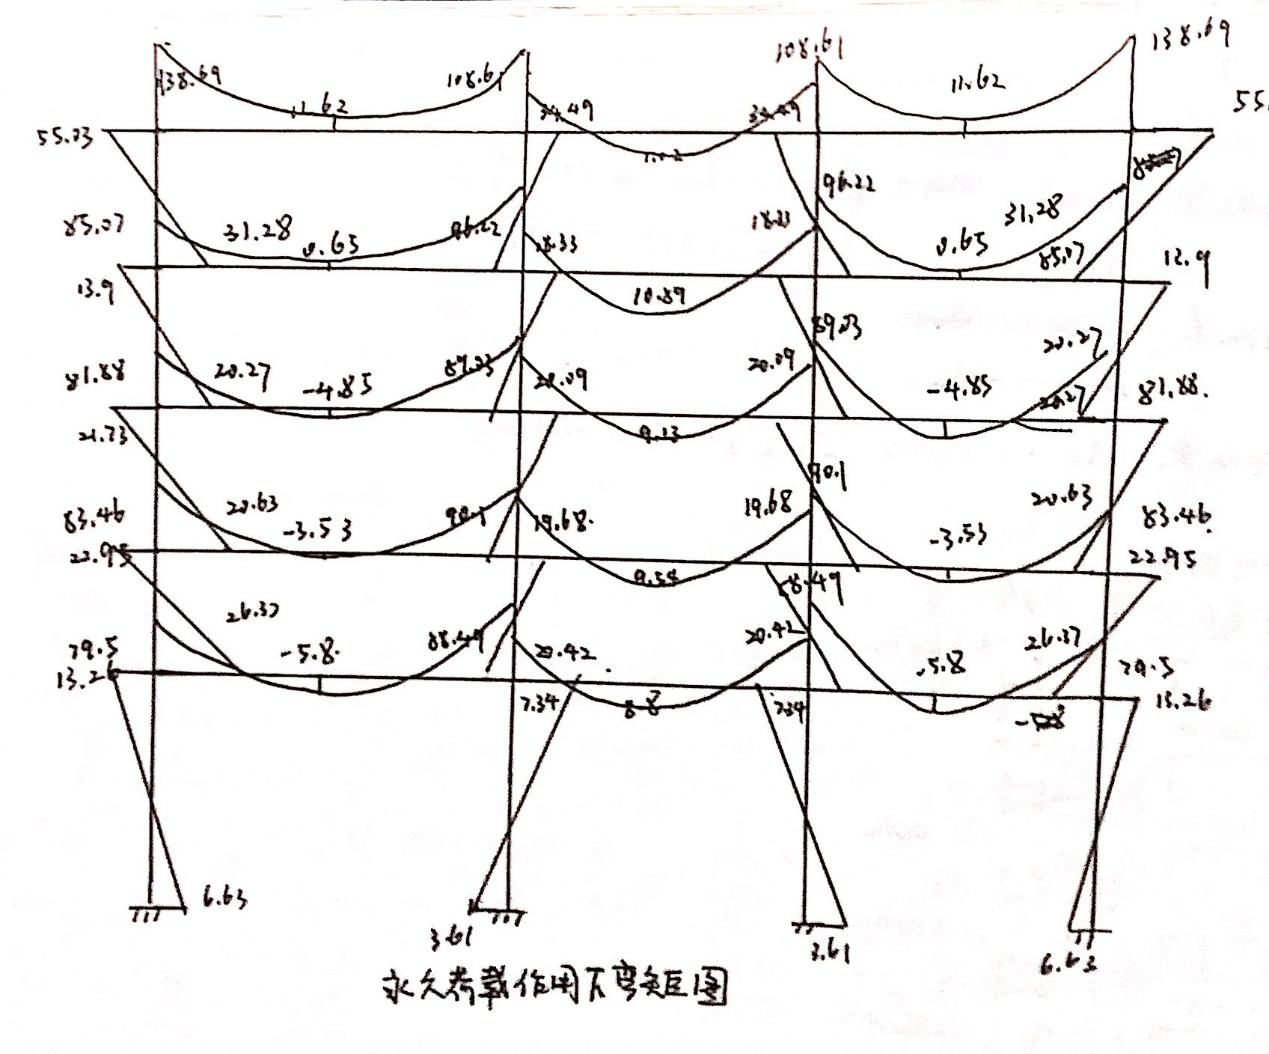 138.69 108.61 108.61 11.62 138.69
1.62 34.49 34.49
55.03 55.
85.07 31.28 0.65 96.22 18.33 18.33 96.22 31.28 0.65 85.07
13.9 10.89 12.9
81.88 20.27 -4.85 89.23 20.09 20.09 89.23 -4.85 20.27 20.27 81.88.
21.73 9.13
83.46 20.63 -3.53 90.1 19.68. 19.68 90.1 -3.53 20.63 83.46.
22.95 9.54 22.95
79.5 26.37 -5.8. 88.49 20.42. 20.42 88.49 -5.8 26.37 79.5
13.26 7.34 8.8 7.34 13.26
6.63 3.61 3.61 6.63
永久荷载作用下弯矩图